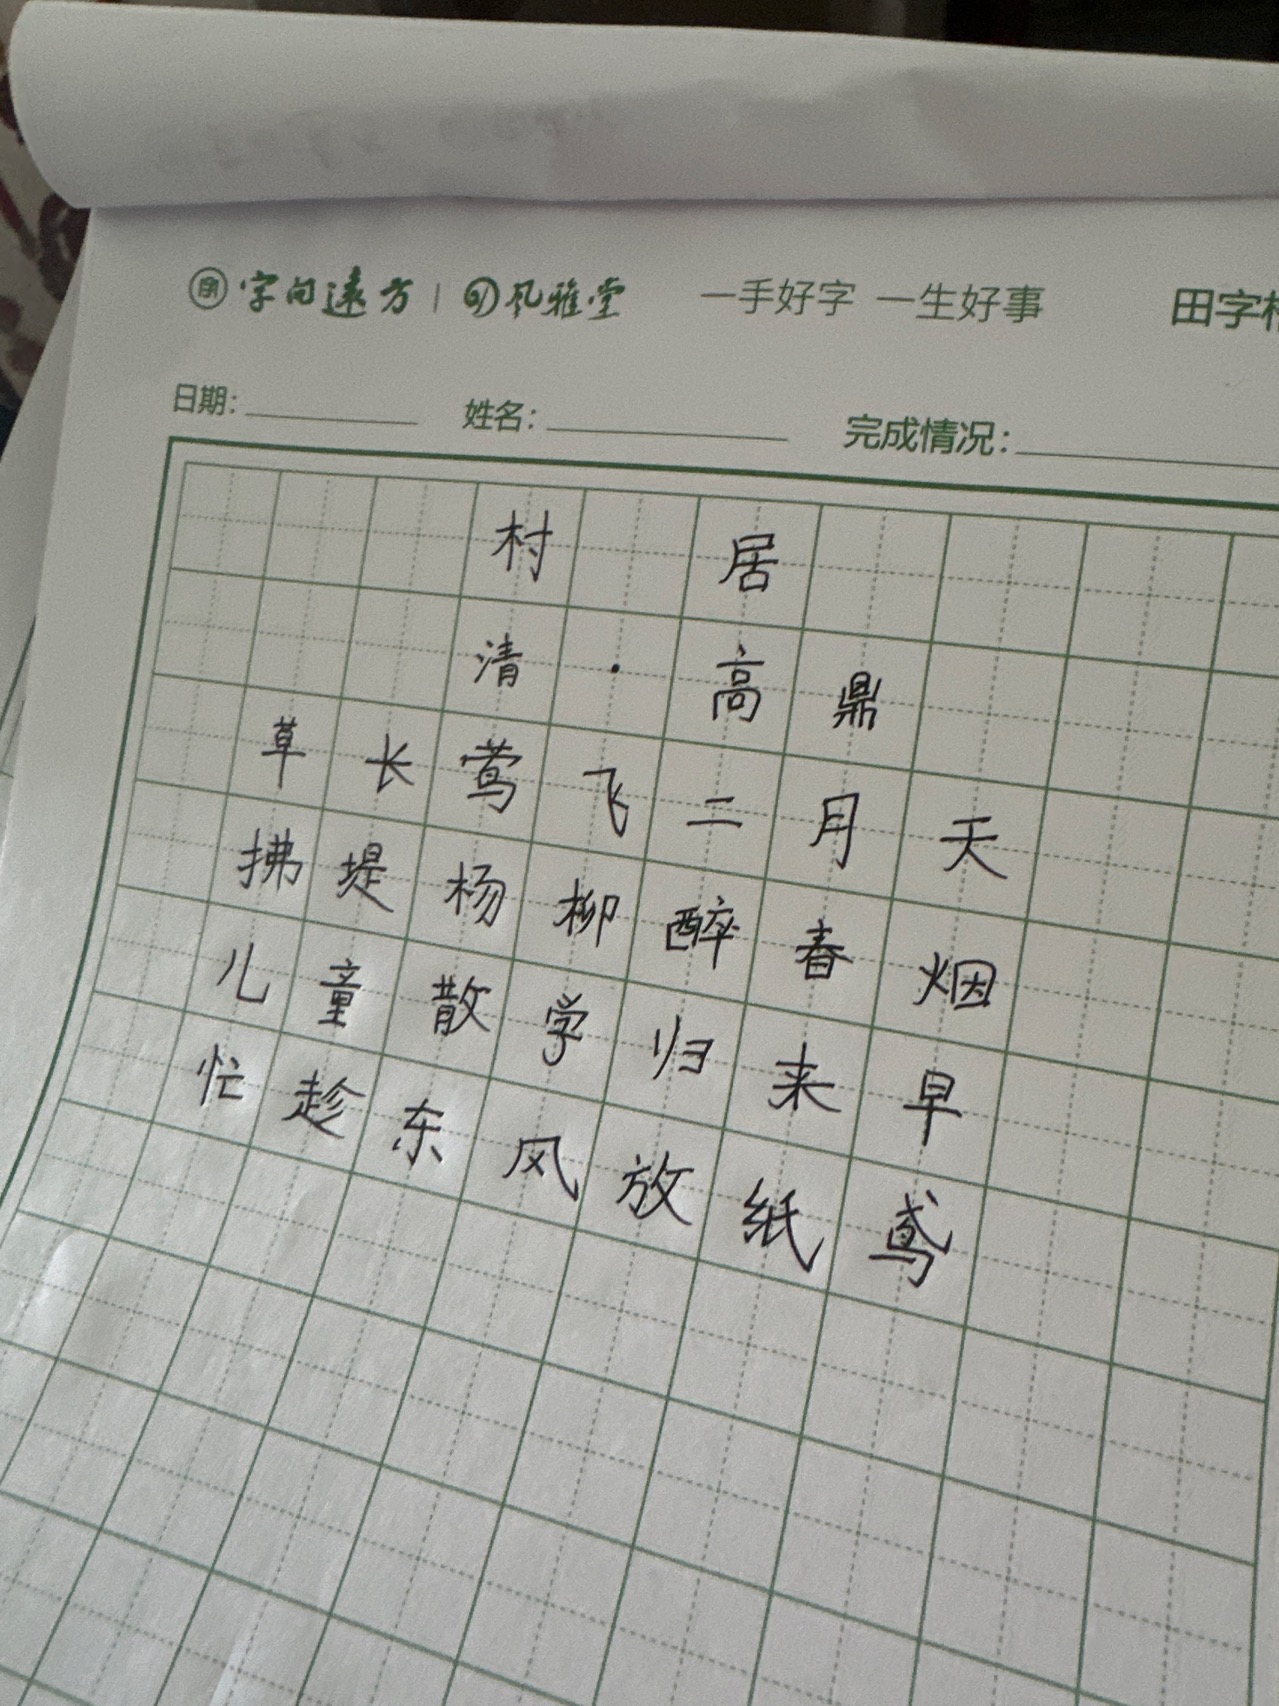 字问远方 | 风雅堂 一手好字 一生好事 田字格
日期: 姓名: 完成情况:
村 居
清 · 高 鼎
草 长 莺 飞 二 月 天
拂 堤 杨 柳 醉 春 烟
儿 童 散 学 归 来 早
忙 趁 东 风 放 纸 鸢